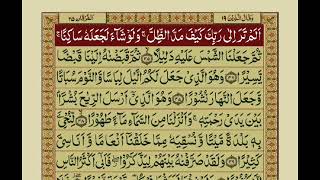 وَقَالَ الَّذِيْنَ ١٩ الْفُرْقَان ٢٥
اَلَمْ تَرَ اِلٰى رَبِّكَ كَيْفَ مَدَّ الظِّلَّ ۚ وَلَوْ شَآءَ لَجَعَلَهٗ سَاكِنًا ۚ
ثُمَّ جَعَلْنَا الشَّمْسَ عَلَيْهِ دَلِيْلًا ۙ ثُمَّ قَبَضْنٰهُ اِلَيْنَا قَبْضًا
يَّسِيْرًا ۝ وَهُوَ الَّذِيْ جَعَلَ لَكُمُ الَّيْلَ لِبَاسًا وَّالنَّوْمَ سُبَاتًا
وَّجَعَلَ النَّهَارَ نُشُوْرًا ۝ وَهُوَ الَّذِيْٓ اَرْسَلَ الرِّيٰحَ بُشْرًۢا
بَيْنَ يَدَيْ رَحْمَتِهٖ ۚ وَاَنْزَلْنَا مِنَ السَّمَآءِ مَآءً طَهُوْرًا ۝ لِّنُحْيِۦَ
بِهٖ بَلْدَةً مَّيْتًا وَّنُسْقِيَهٗ مِمَّا خَلَقْنَآ اَنْعَامًا وَّاَنَاسِيَّ
كَثِيْرًا ۝ وَلَقَدْ صَرَّفْنٰهُ بَيْنَهُمْ لِيَذَّكَّرُوْا ۖ فَاَبٰٓى اَكْثَرُ النَّاسِ